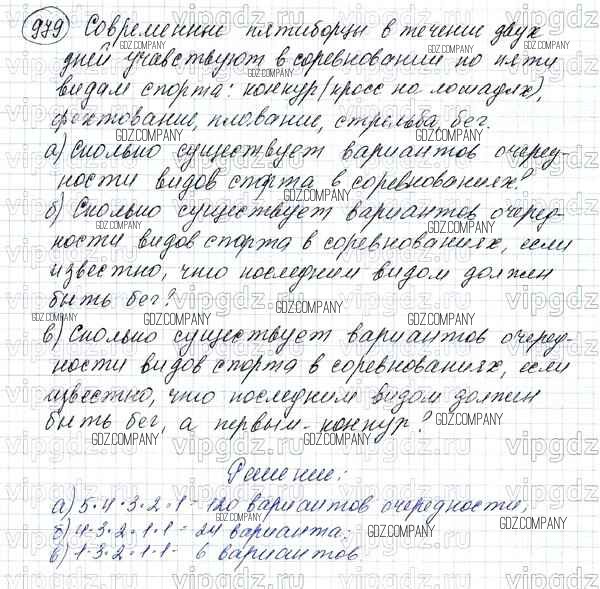 979 Современные пятиборцы в течении двух
дней учавствуют в соревновании по пяти
видам спорта: конкур (кросс на лошадях),
фехтование, плавание, стрельба, бег.
а) Сколько существует вариантов очеред-
ности видов спорта в соревнованиях?
б) Сколько существует вариантов очеред-
ности видов спорта в соревнованиях, если
известно, что последним видом должен
быть бег?
в) Сколько существует вариантов очеред-
ности видов спорта в соревнованиях, если
известно, что последним видом должен
быть бег, а первым - конкур?
Решение:
а) 5·4·3·2·1 = 120 вариантов очередности;
б) 4·3·2·1·1 = 24 варианта;
в) 1·3·2·1·1 = 6 вариантов
GDZ.COMPANY
vipgdz.ru